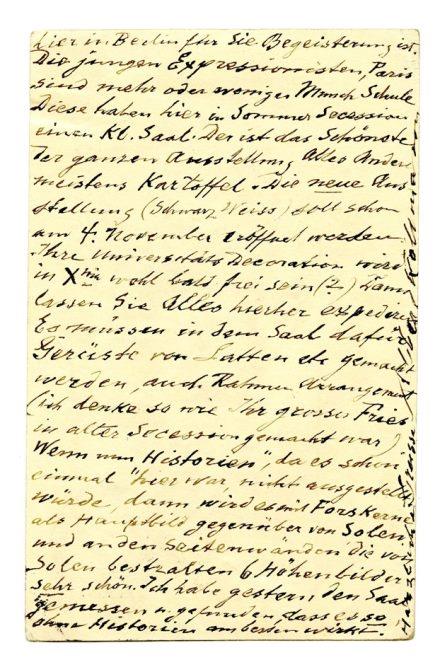 hier in Berlin für Sie Begeisterung ist.
Die jungen Expressionisten, Paris
sind mehr oder weniger Munch Schule
Diese haben hier in Sommer Secession
einen Kl. Saal. Der ist das Schönste
der ganzen Ausstellung Alles Andere
meistens Kartoffel. Die neue Aus
stellung (Schwarz Weiss) soll schon
am 4. November eröffnet werden.
Ihre Universitäts Decoration wird
in Xnia wohl bald frei sein (?) Dann
lassen Sie Alles hierher expedieren
Es müssen in dem Saal dafür
Gerüste von Latten etc gemacht
werden, auch Rahmen
(ich denke so wie Ihr grosser Fries
in alter Secession gemacht war)
Wenn nun Historien", da es schon
einmal "hier war, nicht ausgestellt
würde, dann wird es mit Forskerne
als Hauptbild gegenüber von Solen,
und an den Seitenwänden die von
Solen bestralten 6 Höhenbilder
sehr schön. Ich habe gestern den Saal
gemessen u. gefunden, dass es so
ohne Historien am besten wirkt.